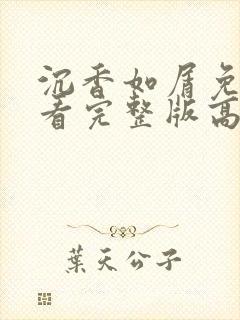 沉香如屑免
看完整版高
葉天公子